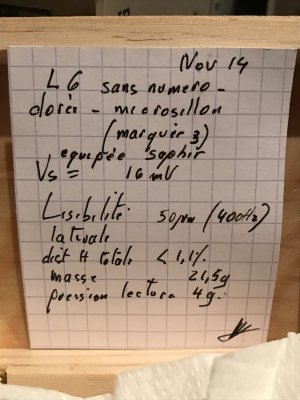 Nov 14
L6 sans numero -
dorée - microsillon
(marquée 3)
equipée saphir
Vs = 16 mV
Lisibilité 50µm (400Hz)
laterale
dist H totale < 1,1%
masse 21,5g
pression lecture 4g.